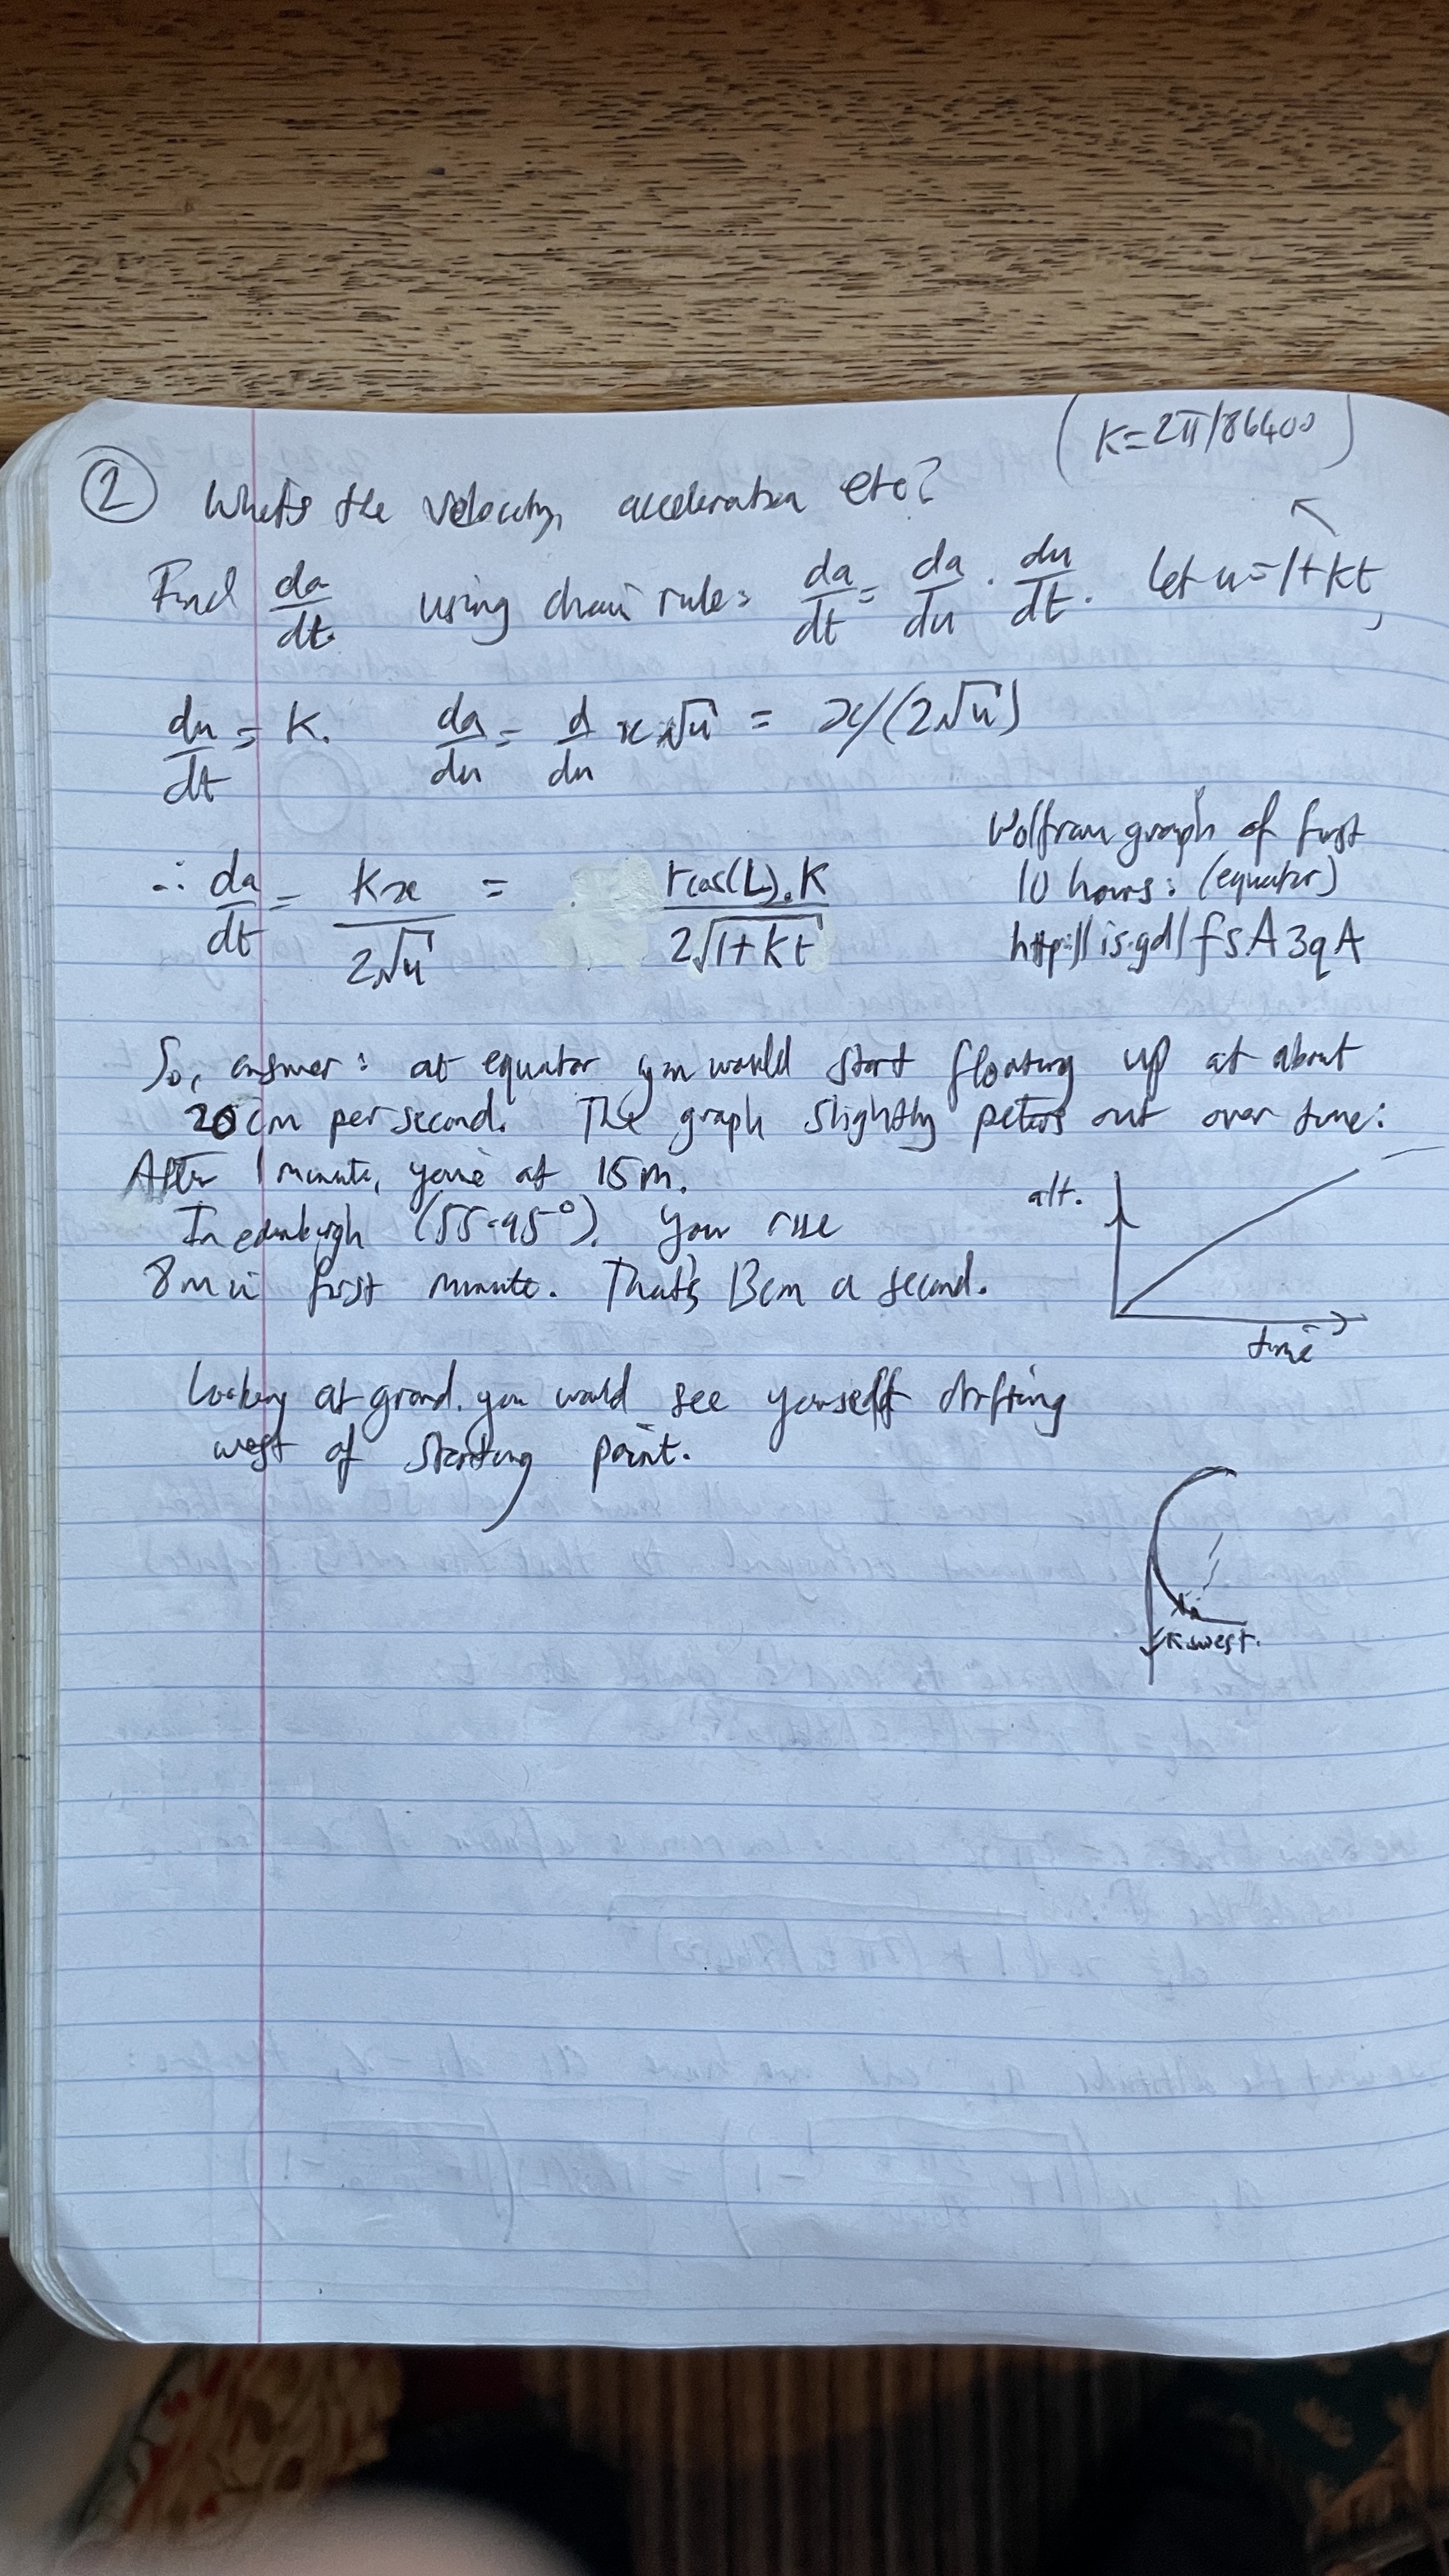 (K=2π/86400)
② What's the velocity, acceleration etc?
Find da/dt. using chain rule: da/dt = da/du · du/dt. let u=1+kt,
du/dt = K. da/du = d/du x√u = x/(2√u)
∴ da/dt = Kx/2√u = rcos(L).K/2√1+kt
Wolfram graph of first
10 hours: (equator)
http://is.gd/fsA3qA
So, answer: at equator you would start floating up at about
20cm per second. The graph slightly peters out over time:
After 1 minute, you're at 15m.
In edinburgh (55.95°). you rise
8m in first minute. That's 13cm a second.
alt.
time
Looking at grond. you would see yourself drifting
west of starting point.
west.